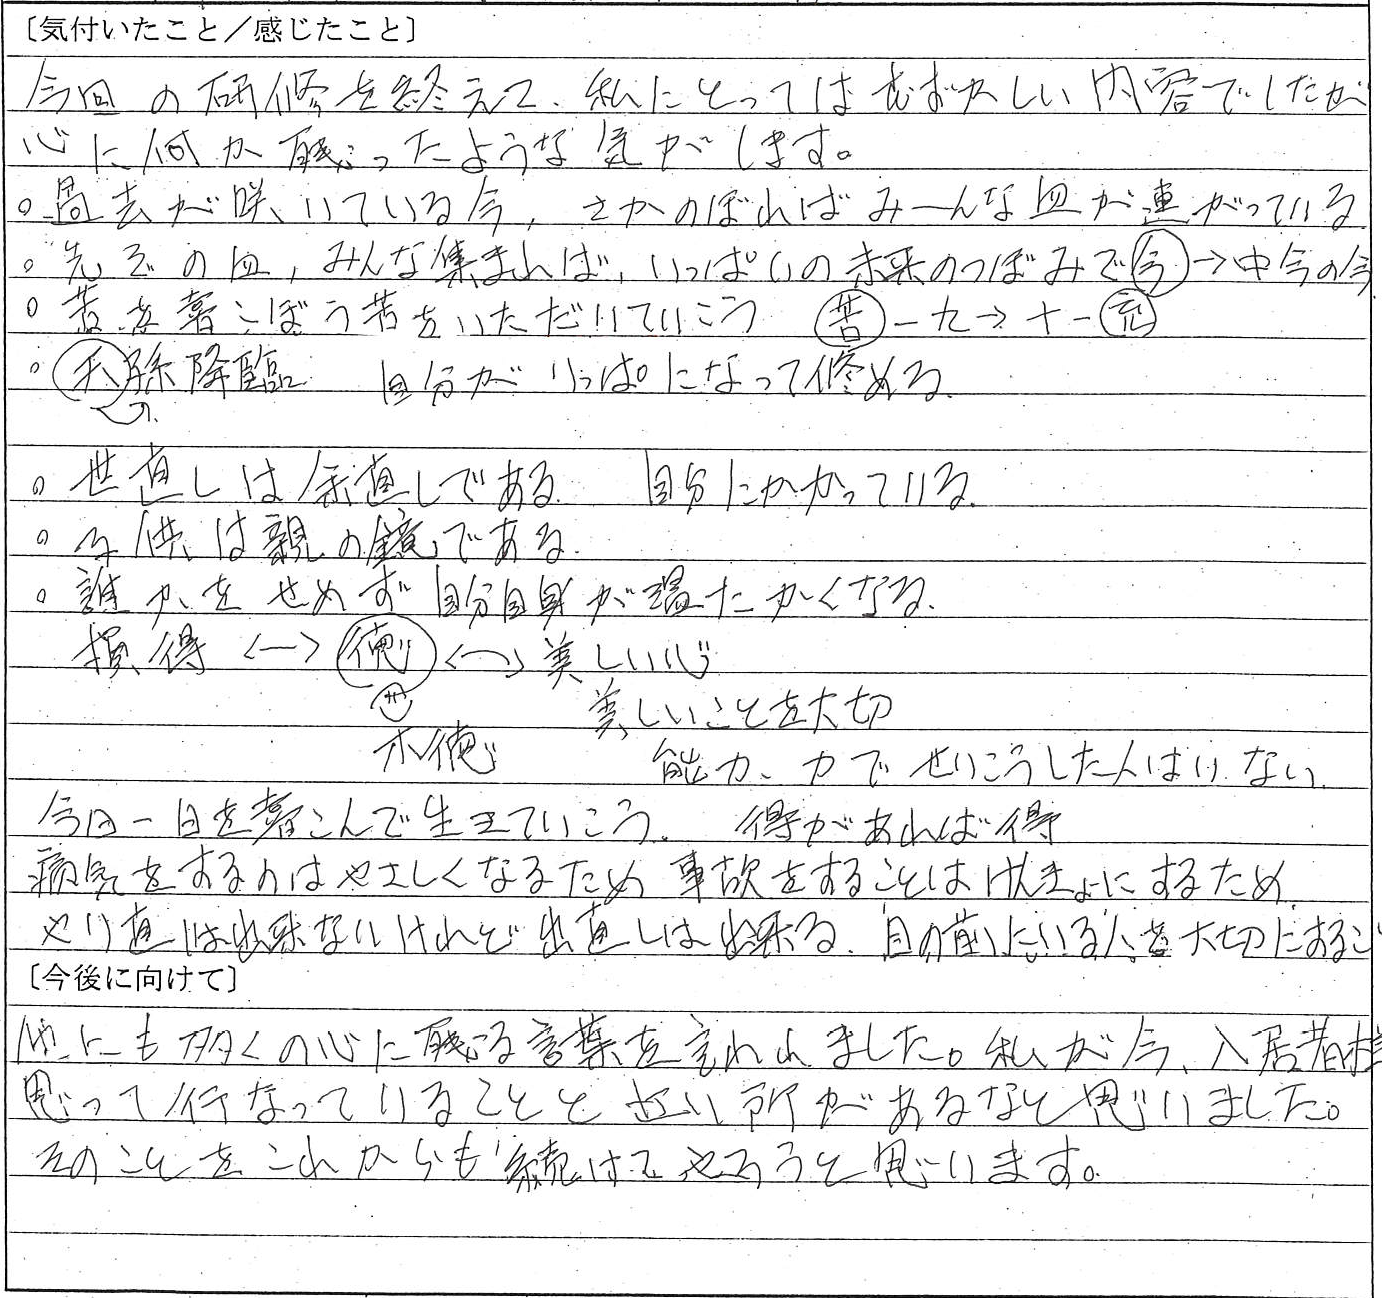 〔気付いたこと／感じたこと〕
今回の研修を終えて、私にとってはむずかしい内容でしたが
心に何か残ったような気がします。
○過去が咲いている今, さかのぼればみーんな血が連がっている
○先ぞの血, みんな集まれば, いっぱいの未来のつぼみで今→中今の今
○苦を喜こぼう苦をいただいていこう 苦－九→十－充
○天孫降臨 自分がりっぱになって修める.
○世直しは余直しである. 自分にかかっている.
○子供は親の鏡である.
○誰かをせめず自分自身が温たかくなる.
損得 <―> 徳 <―> 美しい心
美しいことを大切
不徳
能力、力でせいこうした人はいない.
今日一日を喜こんで生きていこう. 得があれば得
病気をするのはやさしくなるため 事故をすることはけんきょにするため
やり直しは出来ないけれど出直しは出来る. 目の前にいる人を大切にするこ
〔今後に向けて〕
他にも多くの心に残る言葉を言われました。私が今、入居者様
思って行なっていることと近い所があるなと思いました。
そのことをこれからも続けてやろうと思います。